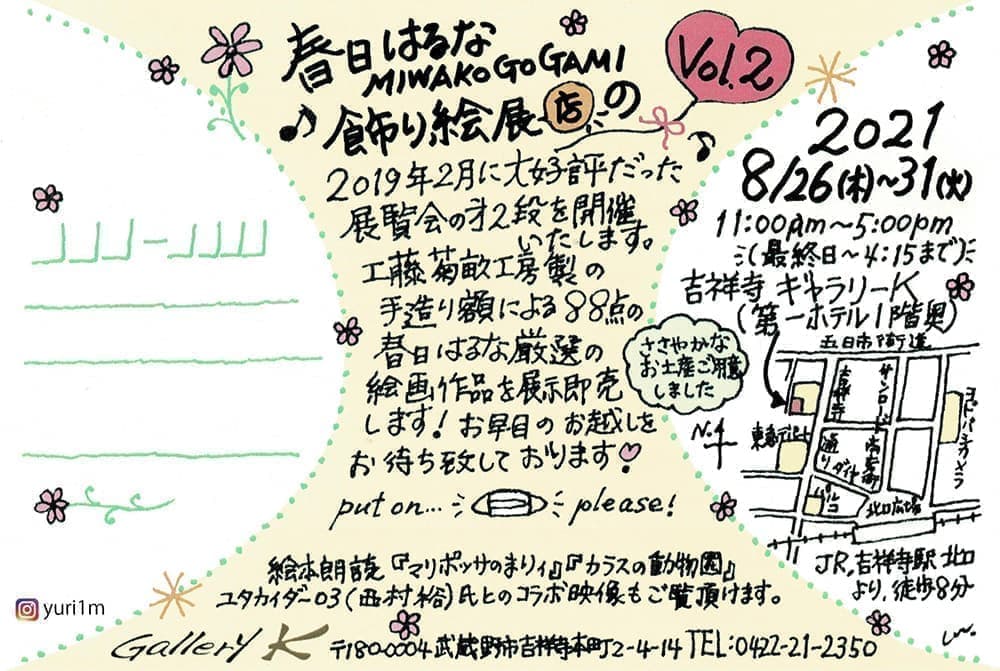 春日はるな
MIWAKO GOGAMI
飾り絵展店の
Vol.2
2019年2月に大好評だった
展覧会の才2段を開催
いたします。
工藤菊畝工房製の
手造り額による88点の
春日はるな厳選の
絵画作品を展示即売
します!お早目のお越しを
お待ち致しております!
put on... please!
2021
8/26(木)~31(火)
11:00am~5:00pm
(最終日~4:15まで)
吉祥寺 ギャラリーK
(第一ホテル1階奥)
ささやかな
お土産ご用意
しました
五日市街道
吉祥寺
通り
サンロード
商店街
ダイヤ
ヨドバシカメラ
東急デパート
パルコ
北口広場
N.4
JR,吉祥寺駅北口
より,徒歩8分
絵本朗読『マリポッサのまりィ』『カラスの動物園』
ユタカイダー03(西村裕)氏とのコラボ映像もご覧頂けます。
yuri1m
Gallery K 〒180-0004 武蔵野市吉祥寺本町2-4-14 TEL:0422-21-2350